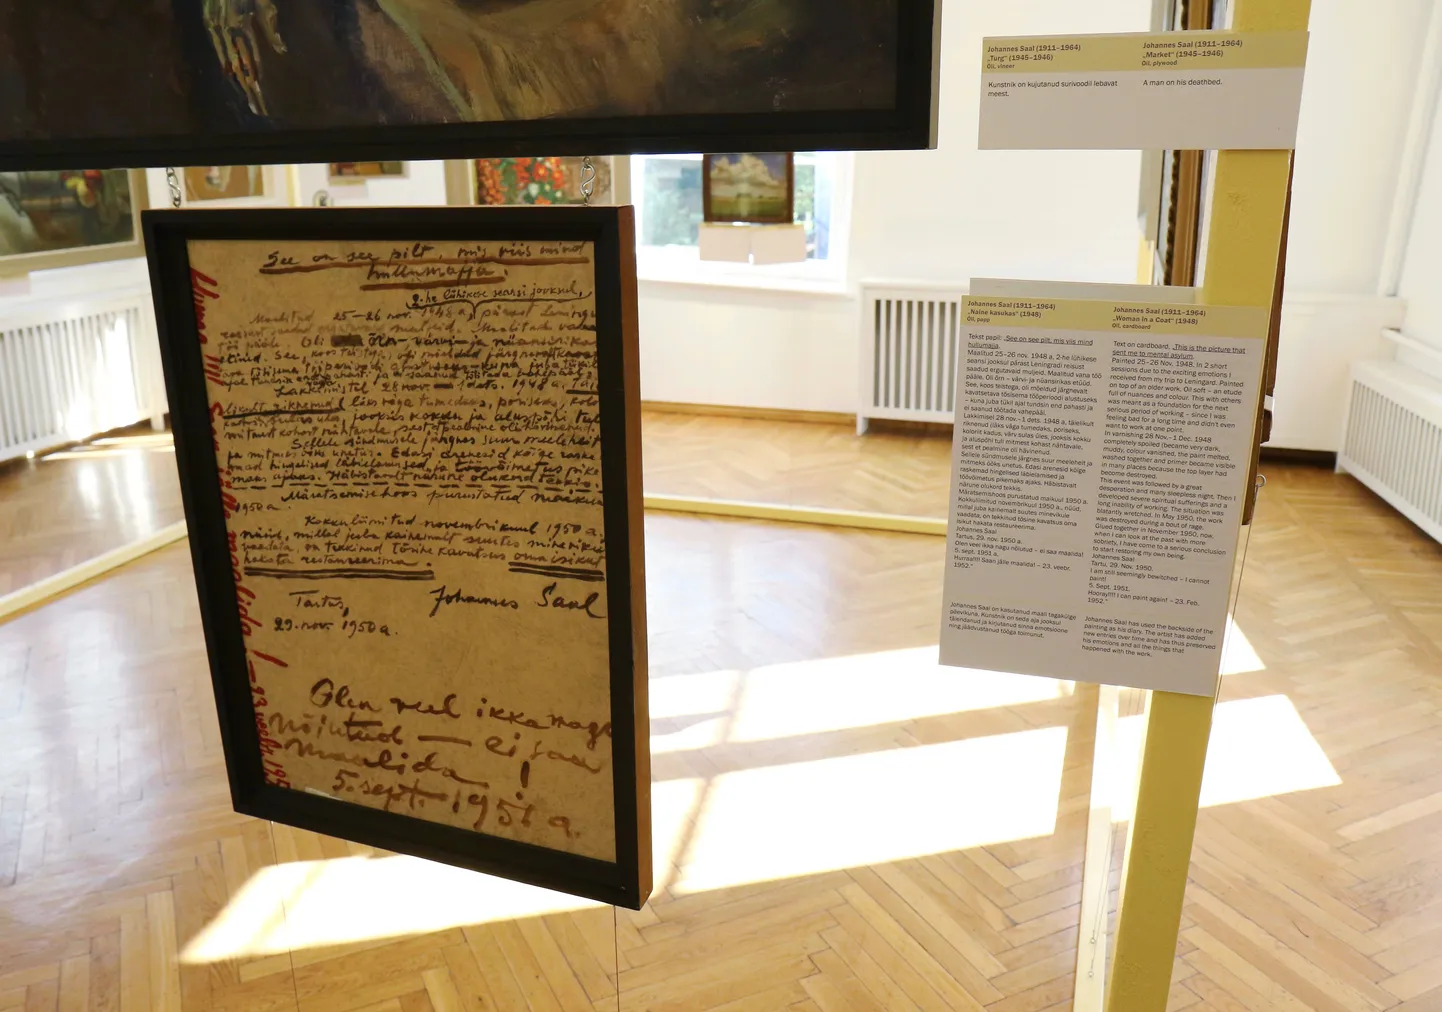 Johannes Saal (1911–1964)
„Turg" (1945–1946)
Oil, vineer
Kunstnik on kujutanud surivoodil lebavat
meest.
Johannes Saal (1911–1964)
„Market" (1945–1946)
Oil, plywood
A man on his deathbed.
See on see pilt, mis viis mind
hullumajja.
2-he lühikese seansi jooksul,
Maalitud 25–26 nov. 1948 a,
28 nov. – 1 dets. 1948 a,
Sellele sündmusele järgnes suur meeleheit
Märatsemishoos purustatud maikuu
1950 a.
Kokkuliimitud novembrikuul 1950 a.
nüüd, millal juba kainemalt suutes minevikku
vaadata, on tekkinud tõsine kavatsus oma isikut
hakata restaureerima.
Tartus,
29. nov. 1950 a.
Johannes Saal
Olen veel ikka nagu
nõiutud – ei saa
maalida!
5. sept. 1951 a.
Johannes Saal (1911–1964)
„Naine kasukas" (1948)
Oil, papp
Tekst papil: „See on see pilt, mis viis mind
hullumajja.
Maalitud 25–26 nov. 1948 a, 2-he lühikese
seansi jooksul pärast Leningradi reisust
saadud ergutavaid muljeid. Maalitud vana töö
pääle. Oli õrn – värvi- ja nüansirikas etüüd.
See, koos teistega, oli mõeldud järgnevalt
kavatsetava tõsisema tööperioodi alustuseks
– kuna juba tükil ajal tundsin end pahasti ja
ei saanud töötada vahepääl.
Lakkimisel 28 nov.– 1 dets. 1948 a, täielikult
riknenud (läks väga tumedaks, poriseks,
kolorit kadus, värv sulas üles, jooksis kokku
ja aluspõhi tuli mitmest kohast nähtavale,
sest et pealmine oli hävinenud.
Sellele sündmusele järgnes suur meeleheit ja
mitmeid ööks unetus. Edasi arenesid kõige
raskemad hingelised läbielamised ja
töövõimetus pikemaks ajaks. Häbistavalt
närune olukord tekkis.
Märatsemishoos purustatud maikuul 1950 a.
Kokkuliimitud novembrikuul 1950 a., nüüd,
millal juba kainemalt suutes minevikule
vaadata, on tekkinud tõsine kavatsus oma
isikut hakata restaureerima.
Johannes Saal
Tartus, 29. nov. 1950 a.
Olen veel ikka nagu nõiutud – ei saa maalida!
5. sept. 1951 a.
Hurraa!!! Saan jälle maalida! – 23. veebr.
1952."
Johannes Saal on kasutanud maali tagakülge
päevikuna. Kunstnik on seda aja jooksul
täiendanud ja kirjutanud sinna emotsioone
ning jäädvustanud tööga toimunut.
Johannes Saal (1911–1964)
„Woman in a Coat" (1948)
Oil, cardboard
Text on cardboard: „This is the picture that
sent me to mental asylum.
Painted 25–26 Nov. 1948. In 2 short
sessions due to the exciting emotions I
received from my trip to Leningard. Painted
on top of an older work. Oil soft – an etude
full of nuances and colour. This with others
was meant as a foundation for the next
serious period of working – since I was
feeling bad for a long time and didn't even
want to work at one point.
In varnishing 28 Nov.–1 Dec. 1948
completely spoiled (became very dark,
muddy, colour vanished, the paint melted,
washed together and primer became visible
in many places because the top layer had
become destroyed.
This event was followed by a great
desperation and many sleepless night. Then I
developed severe spiritual sufferings and a
long inability of working. The situation was
blatantly wretched. In May 1950, the work
was destroyed during a bout of rage.
Glued together in November 1950, now,
when I can look at the past with more
sobriety, I have come to a serious conclusion
to start restoring my own being.
Johannes Saal
Tartu, 29. Nov. 1950.
I am still seemingly bewitched – I cannot
paint!
5. Sept. 1951.
Hooray!!!! I can paint again! – 23. Feb.
1952."
Johannes Saal has used the backside of the
painting as his diary. The artist has added
new entries over time and has thus preserved
his emotions and all the things that
happened with the work.